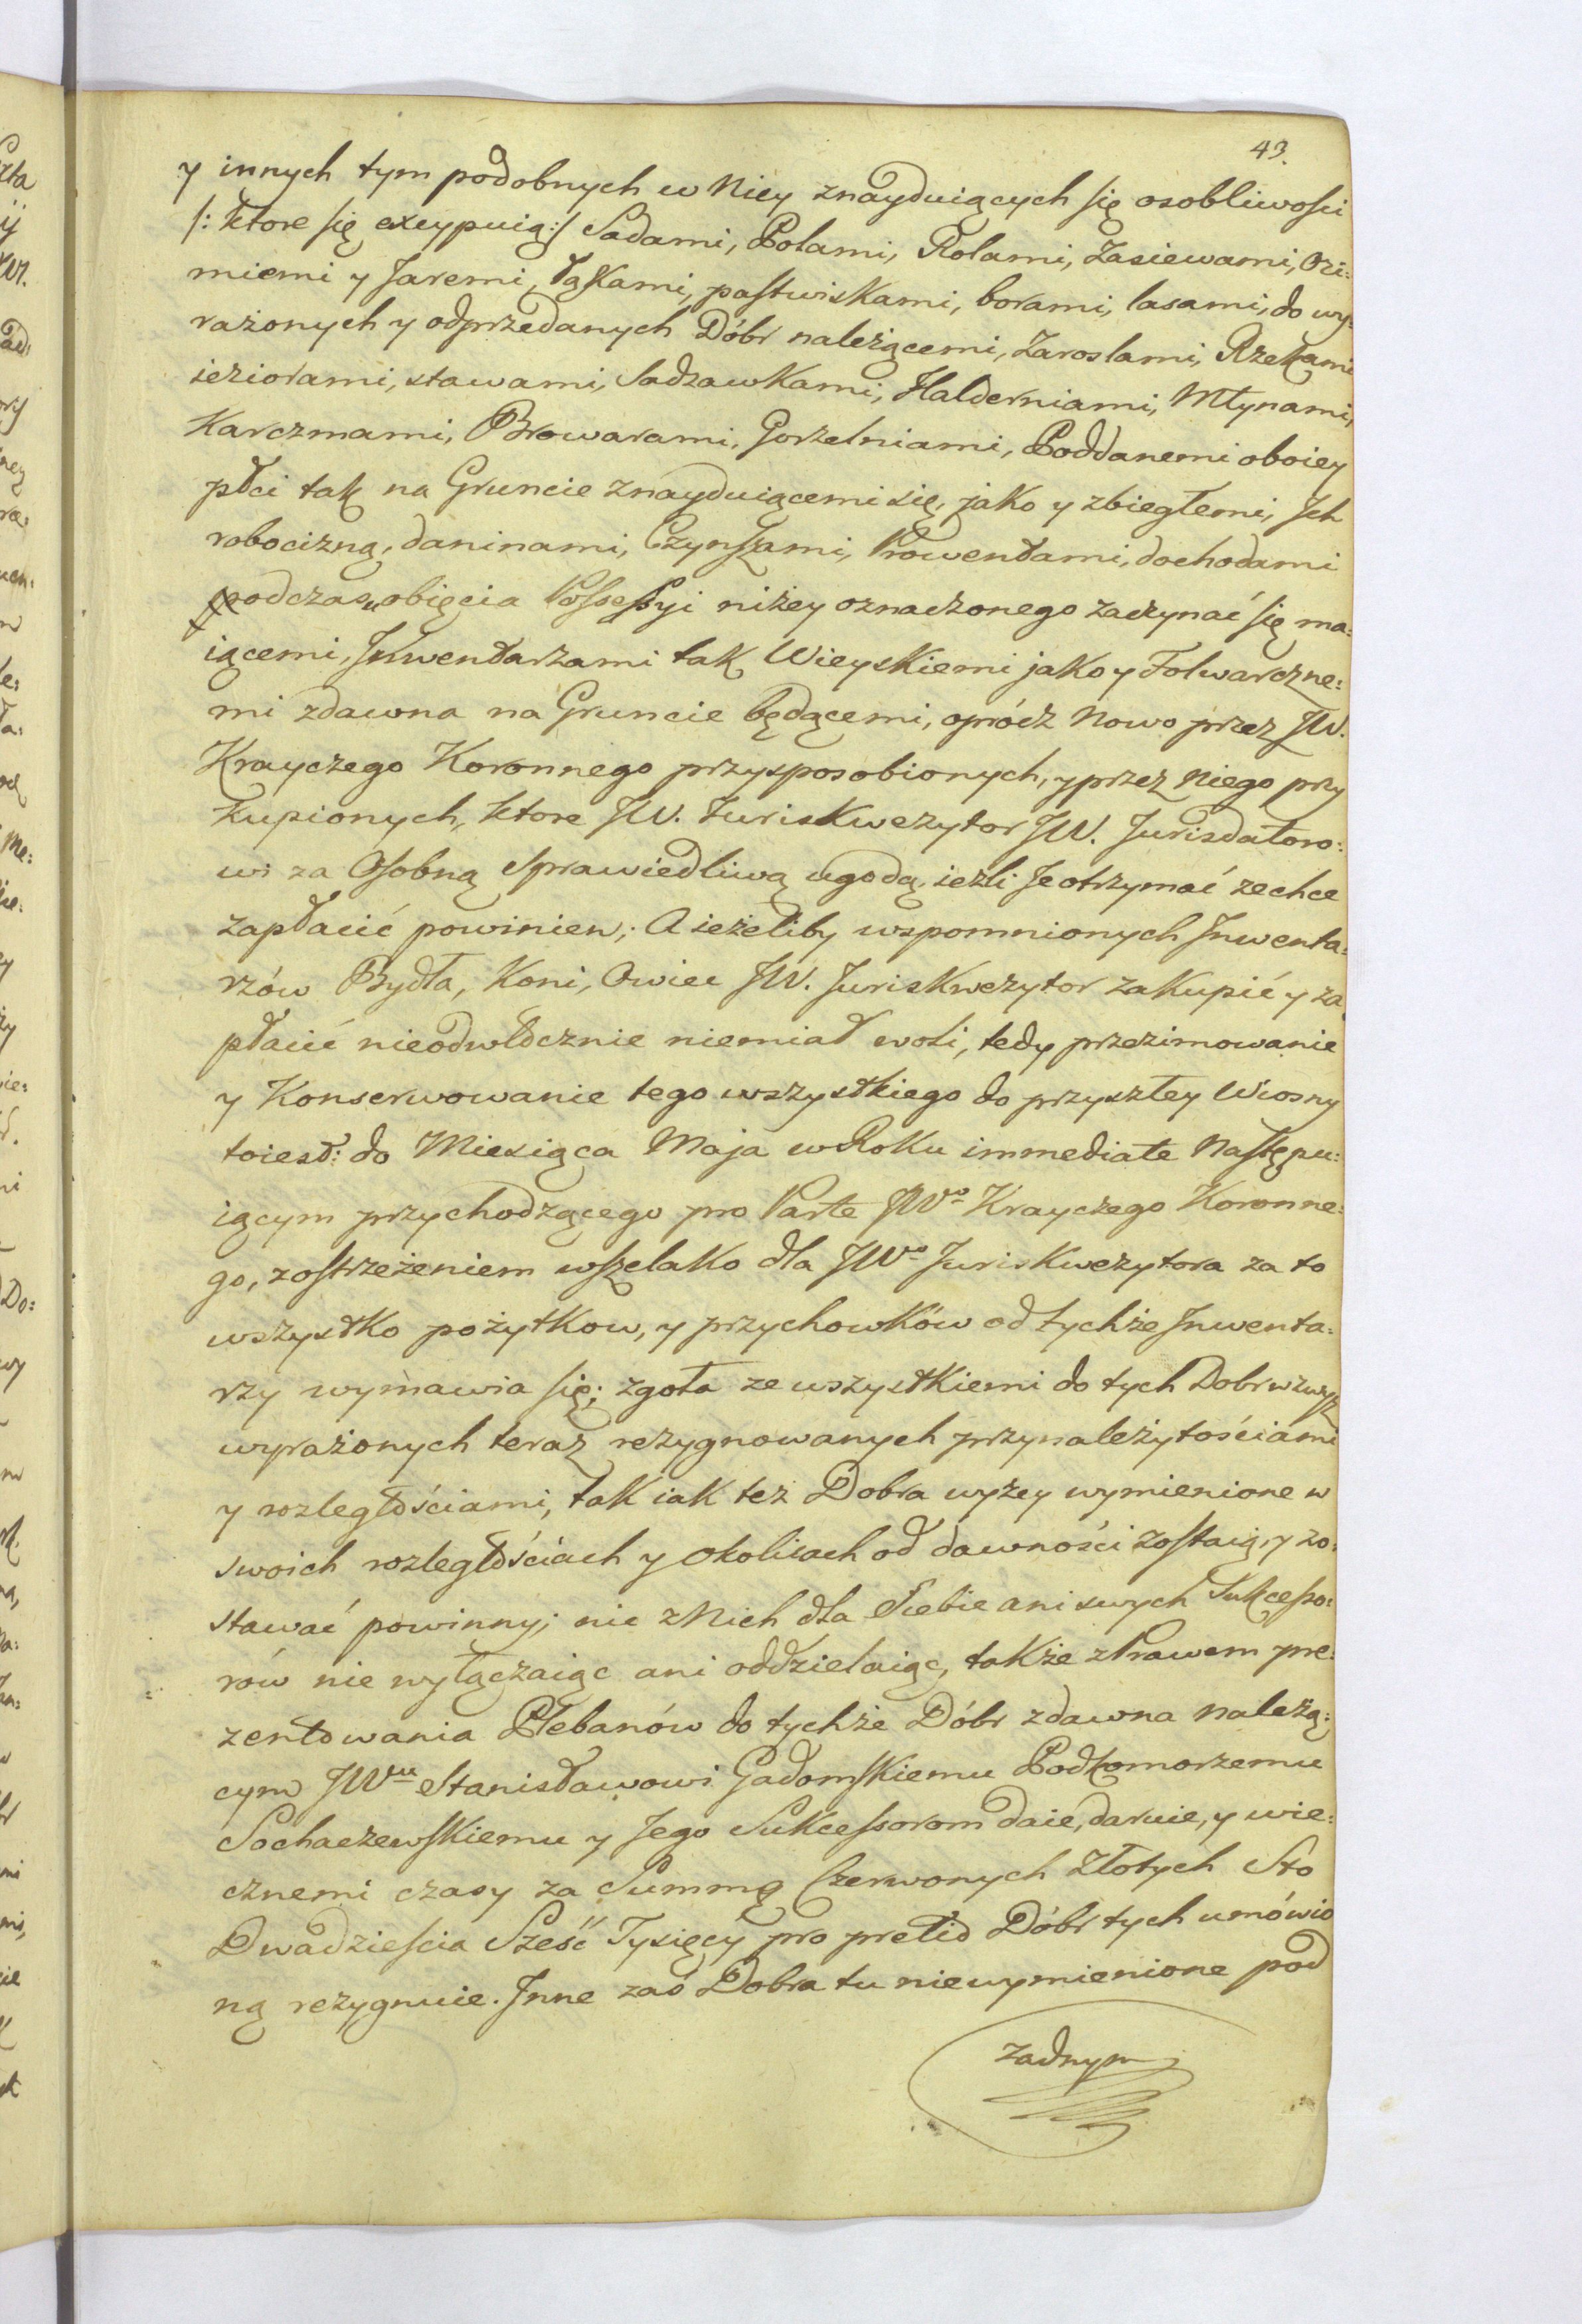 43.
y innych tym podobnych w Niey znayduiących się osobliwości
/: ktore się excypuią :/ Sadami, Polami, Rolami, Zasiewami, Ozi:
miemi y Jaremi, Łąkami, pastwiskami, borami, lasami, do wy:
rażonych y odprzedanych Dóbr należącemi, Zaroslami, Rzekami
ieziorami, stawami, Sadzawkami, Halderniami, Młynami,
Karczmami, Browarami, Gorzelniami, Poddanemi oboiey
płci tak na Gruncie znayduiącemi się, jako y zbiegłemi, Jch
robocizną, daninami, Czynszami, Prowentami, dochodami
podczas obięcia Possessyi niżey oznaczonego zaczynać się ma:
iącemi, Jnwentarzami tak Wieyskiemi jako y Folwarczne:
mi zdawna na Gruncie będącemi, oprócz Nowo przez JW.
Krayczego Koronnego przysposobionych, y przez Niego przy
kupionych, ktore JW. Juriskwezytor JW. Jurisdatoro:
wi za Osobną Sprawiedliwą ugodą, ieżli Je otrzymać zechce
zapłacić powinien; A ieżeliby wspomnionych Jnwenta:
rzów Bydła, Koni, Owiec JW. Juriskwezytor zakupić y za
płacić nieodwłócznie niemiał woli, tedy przezimowanie
y Konserwowanie tego wszystkiego do przyszłey Wiosny
toiest: do Miesiąca Maja w Roku immediate Nastempu:
iącym przychodzącego pro Parte JWo Krayczego Koronne:
go, zostrzeżeniem wszelako dla JWo Juriskwezytora za to
wszystko pożytkow, y przychowków od tychże Jnwenta:
rzy wymawia się; zgoła ze wszystkiemi do tych Dobr wzwyż
wyrażonych teraz rezygnowanych przynależytościami
y rozległościami, tak iak też Dobra wyżey wymienione w
swoich rozległościach y okolicach od dawności zostaią, y zo:
stawać powinny; nic z Nich dla Siebie ani swych Sukcesso:
rów nie wyłączaiąc ani oddzielaiąc, także z Prawem pre:
zentowania Plebanów do tychże Dóbr zdawna należą:
cym JWu Stanisławowi Gadomskiemu Podkomorzemu
Sochaczewskiemu y Jego Sukcessorom daie, daruie, y wie:
cznemi czasy za Summę Czerwonych Złotych Sto
Dwadzieścia Sześć Tysięcy pro pretio Dóbr tych umówio
ną rezygnuie. Jnne zaś Dobra tu niewymienione pod
żadnym